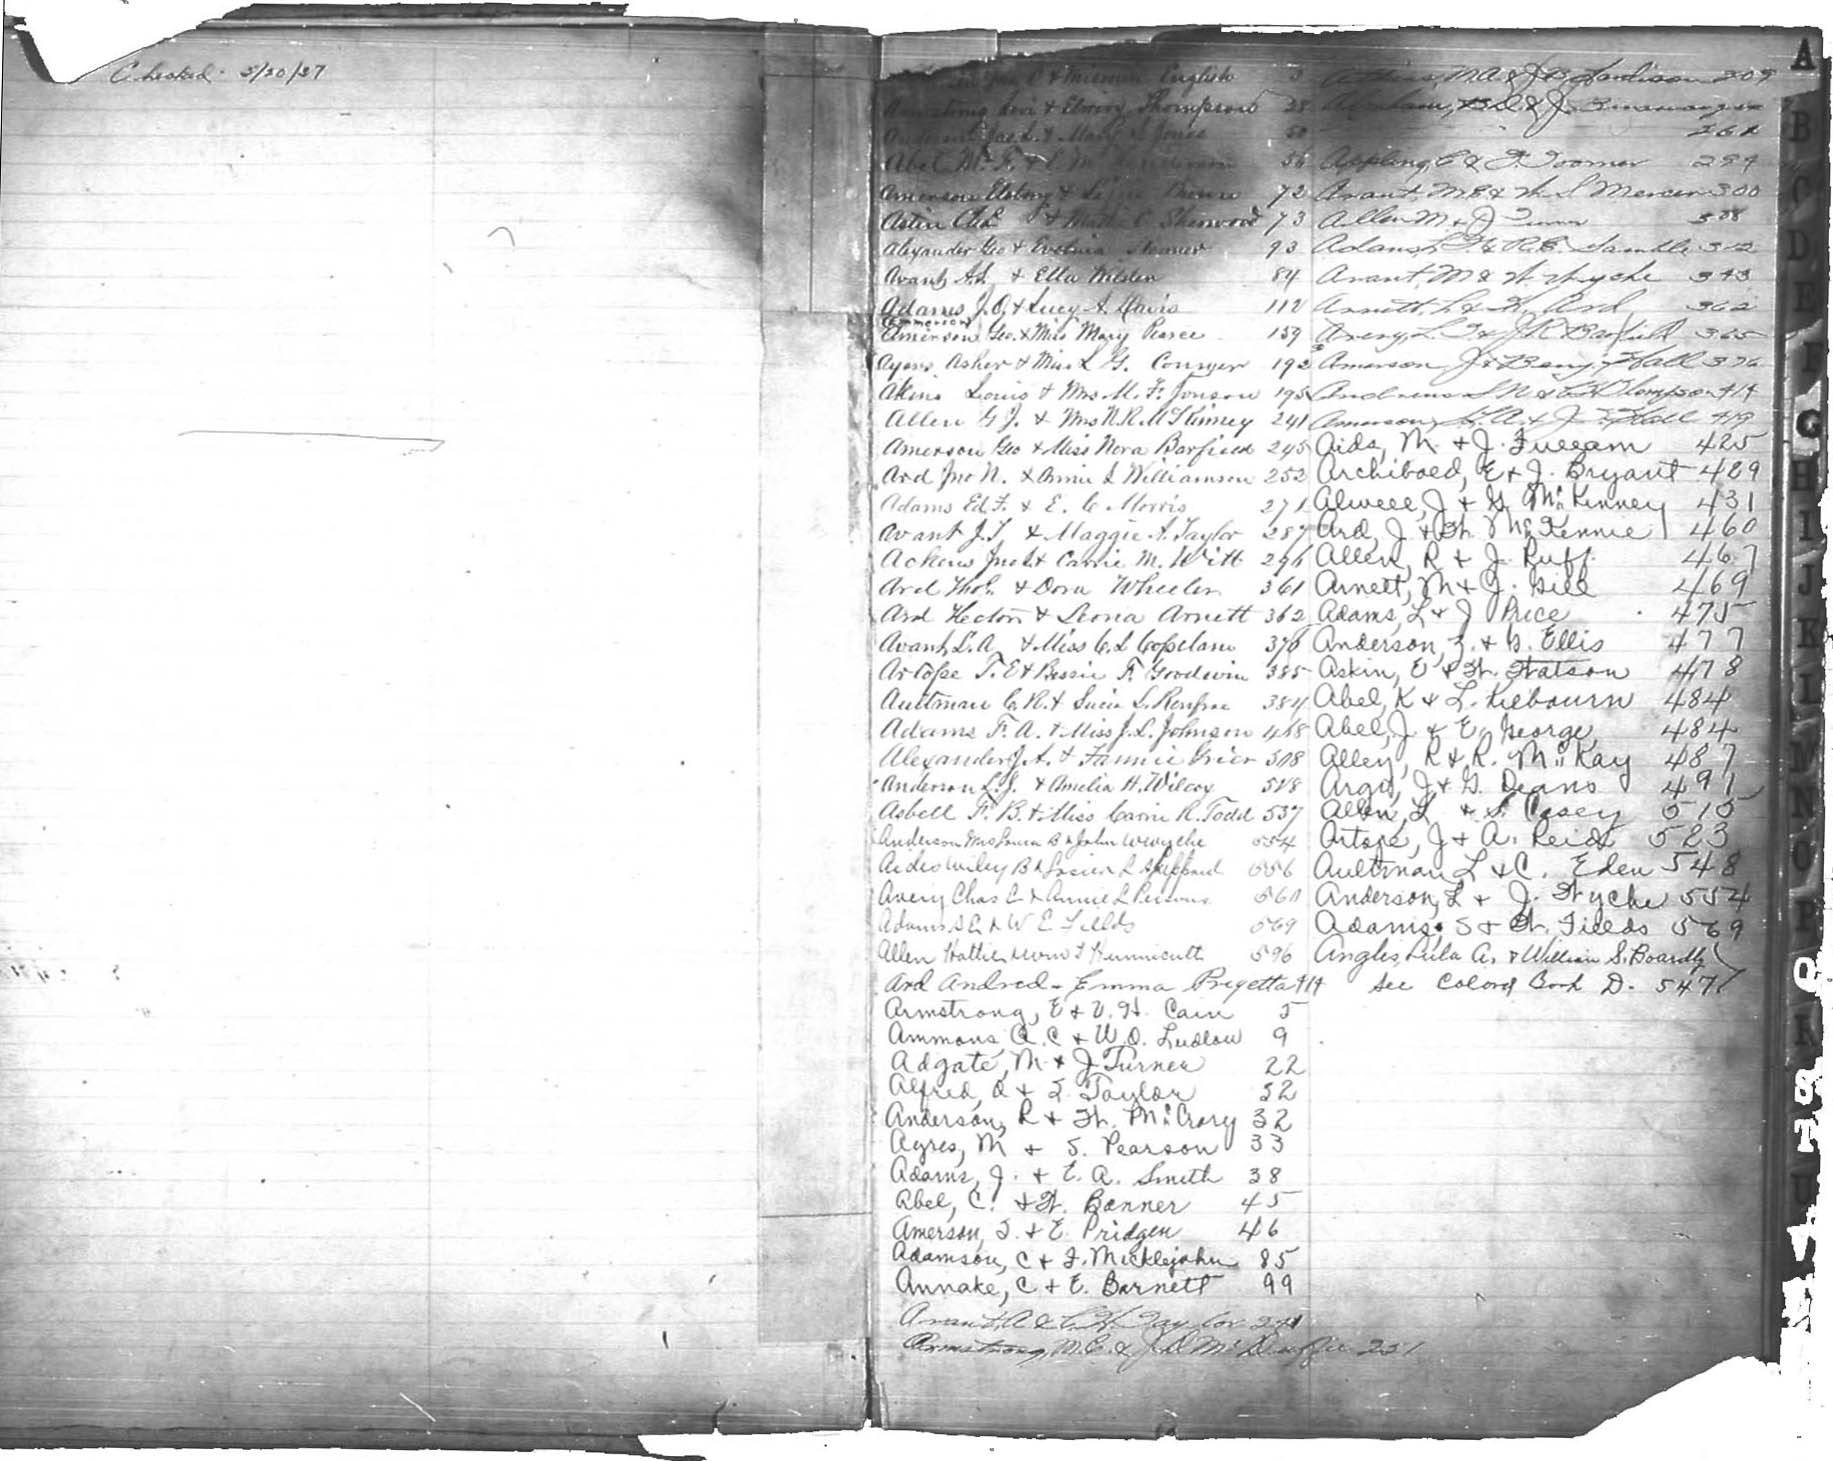 Checked - 5/20/27
English 3
Armstrong Levi & Elmira Thompson 28
Anderson Jas L. & Mary S Jones 50
Abel M. F. & 56
Amerson & 72
Astin Chas & Mattie C. Sherwood 73
Alexander Geo & Evelina 93
Avant A.L. & Ella Wilder 84
Adams J.O. & Lucy A. Davis 112
(Emmerson)
Amerson Geo. & Miss Mary Pearce 159
Ayers Asher & Miss L. G. Conyer 192
Akins Louis & Mrs M. F. Jonson 195
Allen G J. & Mrs N.R. McKinney 241
Amerson Geo & Miss Nora Barfield 245
Ard Jno N. & Annie L Williamson 252
Adams Ed F. & E. C Morris 271
Avant J.T. & Maggie A. Taylor 287
Ackens & Carrie M. Witt 296
Ard Thos. & Dora Wheeler 361
Ard Hector & Leona Arnett 362
Avant L.A. & Miss C. L Copelan 376
Artope T. E & Bessie F. Goodwin 385
Aultman C. R. & Lucia L. Renfroe 384
Adams F. A. & Miss J. L. Johnson 468
Alexander J. A. & Fannie Grier 508
Anderson L. J. & Amelia H. Wilcox 518
Asbell F. B. & Miss Carrie R. Todd 537
Anderson Mrs Laura B & John W Wyche 554
Wiley B & Sheppard 556
Avery Chas E & Annie L Persons 561
Adams S E & W E Fields 569
Allen Hattie & Hunnicutt 596
Ard Andred - Emma Pregetta 414
Armstrong, E & V. H. Cain 5
Ammons A. C & W. O. Ludlow 9
Adgate, M & J Turner 22
Alfred, A & S. Taylor 32
Anderson, R & W. McCrory 32
Ayres, M & S. Pearson 33
Adams, J. & E. A. Smith 38
Abel, C. & W. Banner 45
Amerson, S. & E. Pridgen 46
Adamson, C & F. Micklejohn 85
Annake, C & E. Barnett 99
Avant, A & C. H. Taylor 241
Armstrong, M. C. & J. D. McDuffie 251
Athens, M A & J B Hardison 209
Abraham, & J.
261
Appling, C & F. Toomer 294
Avant, M E & W. S Mercer 300
Allen M & J. 308
Adams, L & R. E. Gamble 312
Avant, M & W. Wyche 343
Arnett, L & H. Ard 362
Avery, L. T & J R Barfield 365
Amerson J & Benj. Hall 376
Andrews S N & C Thompson 414
Amerson, L. A. & J T Hall 419
Aids, M. & J. Fulgam 425
Archibald, E & J. Bryant 429
Alwell, J & G. McKinney 431
Ard, J & W. McKennie 460
Allen, R & J. Ruff 467
Arnett, M & J. Gill 469
Adams, L & J Price 475
Anderson, Z. & G. Ellis 477
Askin, E & W. Watson 478
Abel, K & L. Kilbourn 484
Abel, J & E. George 484
Alley, R & R. McKay 487
Argo, J & G. Deans 491
Allen, L & S. Casey 515
Artope, J & A. Reid 523
Aultman L & C. Eden 548
Anderson, L & J. Wyche 554
Adams, S & W. Fields 569
Angles, Lula A. & William S. Boardly
See Colored Book D. 547
A
B
C
D
E
F
G
H
I
J
K
L
M
N
O
P
Q
R
S
T
U
V